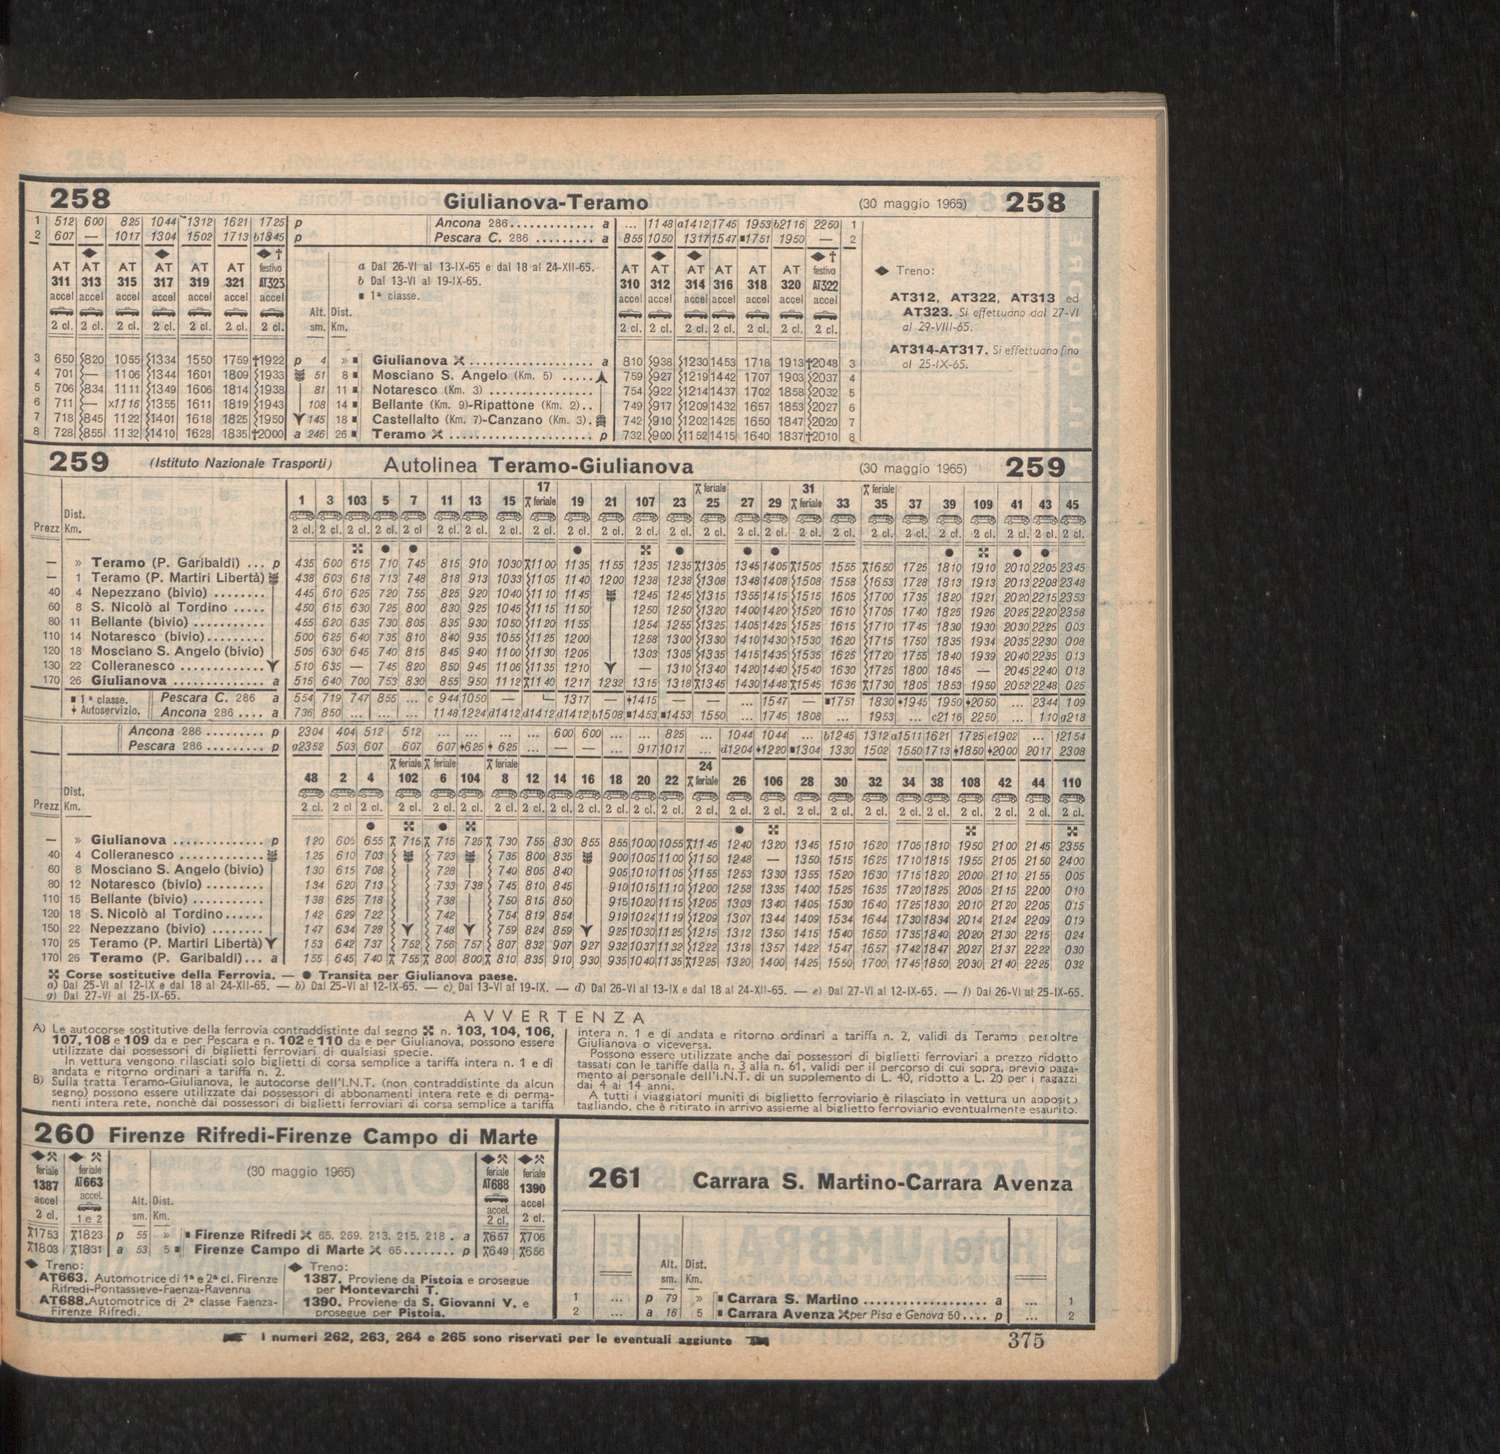 258 Giulianova-Teramo (30 maggio 1965) 258
1 512 600 825 1044 1312 1621 1725 p Ancona 286 a ... 1148 a1412 1745 1953 b2116 2250 1
2 607 — 1017 1304 1502 1713 b1845 p Pescara C. 286 a 855 1050 1317 1547 1751 1950 — 2
AT 311 AT 313 AT 315 AT 317 AT 319 AT 321 festivo AT323
accel accel accel accel accel accel accel
2 cl. 2 cl. 2 cl. 2 cl. 2 cl. 2 cl. 2 cl.
a Dal 26-VI al 13-IX-65 e dal 18 al 24-XII-65.
b Dal 13-VI al 19-IX-65.
■ 1ª classe.
Alt. sm. Dist. Km.
AT 310 AT 312 AT 314 AT 316 AT 318 AT 320 festivo AT322
accel accel accel accel accel accel accel
2 cl. 2 cl. 2 cl. 2 cl. 2 cl. 2 cl. 2 cl.
3 650 820 1055 1334 1550 1759 †1922 p 4 » Giulianova a 810 938 1230 1453 1718 1913 †2048 3
4 701 — 1106 1344 1601 1809 1933 51 8 Mosciano S. Angelo (Km. 5) 759 927 1219 1442 1707 1903 2037 4
5 706 834 1111 1349 1606 1814 1938 81 11 Notaresco (Km. 3) 754 922 1214 1437 1702 1858 2032 5
6 711 — x1116 1355 1611 1819 1943 108 14 Bellante (Km. 9)-Ripattone (Km. 2) 749 917 1209 1432 1657 1853 2027 6
7 718 845 1122 1401 1618 1825 1950 145 18 Castellalto (Km. 7)-Canzano (Km. 3) 742 910 1202 1425 1650 1847 2020 7
8 728 855 1132 1410 1628 1835 †2000 a 246 26 Teramo p 732 900 1152 1415 1640 1837 †2010 8
◆ Treno:
AT312, AT322, AT313 ed
AT323. Si effettuano dal 27-VI
al 29-VIII-65.
AT314-AT317. Si effettuano fino
al 25-IX-65.
259 (Istituto Nazionale Trasporti) Autolinea Teramo-Giulianova (30 maggio 1965) 259
Prezz Dist. Km. 1 3 103 5 7 11 13 15 17 feriale 19 21 107 23 feriale 25 27 29 31 feriale 33 feriale 35 37 39 109 41 43 45
2 cl. 2 cl. 2 cl. 2 cl. 2 cl. 2 cl. 2 cl. 2 cl. 2 cl. 2 cl. 2 cl. 2 cl. 2 cl. 2 cl. 2 cl. 2 cl. 2 cl. 2 cl. 2 cl. 2 cl. 2 cl. 2 cl. 2 cl. 2 cl. 2 cl.
— » Teramo (P. Garibaldi) ... p 435 600 615 710 745 815 910 1030 1100 1135 1155 1235 1235 1305 1345 1405 1505 1555 1650 1725 1810 1910 2010 2205 2345
— 1 Teramo (P. Martiri Libertà) 438 603 618 713 748 818 913 1033 1105 1140 1200 1238 1238 1308 1348 1408 1508 1558 1653 1728 1813 1913 2013 2208 2348
40 4 Nepezzano (bivio) 445 610 625 720 755 825 920 1040 1110 1145 1245 1245 1315 1355 1415 1515 1605 1700 1735 1820 1921 2020 2215 2353
60 8 S. Nicolò al Tordino 450 615 630 725 800 830 925 1045 1115 1150 1250 1250 1320 1400 1420 1520 1610 1705 1740 1825 1926 2025 2220 2358
80 11 Bellante (bivio) 455 620 635 730 805 835 930 1050 1120 1155 1254 1255 1325 1405 1425 1525 1615 1710 1745 1830 1930 2030 2225 003
110 14 Notaresco (bivio) 500 625 640 735 810 840 935 1055 1125 1200 1258 1300 1330 1410 1430 1530 1620 1715 1750 1835 1934 2035 2230 008
120 18 Mosciano S. Angelo (bivio) 505 630 645 740 815 845 940 1100 1130 1205 1303 1305 1335 1415 1435 1535 1625 1720 1755 1840 1939 2040 2235 013
130 22 Colleranesco 510 635 — 745 820 850 945 1106 1135 1210 — 1310 1340 1420 1440 1540 1630 1725 1800 1845 — 2045 2240 018
170 26 Giulianova a 515 640 700 753 830 855 950 1112 1140 1217 1232 1315 1318 1345 1430 1448 1545 1636 1730 1805 1853 1950 2052 2248 025
■ 1ª classe. Pescara C. 286 a 554 719 747 855 ... c 944 1050 — — 1317 — 1415 — — ... 1547 — 1751 1830 1945 1950 2050 ... 2344 109
Autoservizio. Ancona 286 .... a 736 850 ... ... ... 1148 1224 d1412 d1412 d1412 b1508 1453 1453 1550 ... 1745 1808 ... 1953 ... c2116 2250 ... 110 a218
Ancona 286 p 2304 404 512 512 ... ... ... ... 600 600 ... ... 825 ... 1044 1044 ... b1245 1312 a1511 1621 1725 e1902 ... f2154
Pescara 286 p a2352 503 607 607 607 625 625 ... — — ... 917 1017 ... d1204 1220 1304 1330 1502 1550 1713 1850 2000 2017 2308
Prezz Dist. Km. 48 2 4 feriale 102 feriale 6 104 feriale 8 12 14 16 18 20 22 24 feriale 26 106 28 30 32 34 38 108 42 44 110
2 cl. 2 cl 2 cl. 2 cl. 2 cl. 2 cl. 2 cl. 2 cl. 2 cl. 2 cl. 2 cl. 2 cl. 2 cl. 2 cl. 2 cl. 2 cl. 2 cl. 2 cl. 2 cl. 2 cl. 2 cl. 2 cl. 2 cl. 2 cl. 2 cl.
— » Giulianova p 120 605 655 715 715 725 730 755 830 855 855 1000 1055 1145 1240 1320 1345 1510 1620 1705 1810 1950 2100 2145 2355
40 4 Colleranesco 125 610 703 723 735 800 835 900 1005 1100 1150 1248 — 1350 1515 1625 1710 1815 1955 2105 2150 2400
60 8 Mosciano S. Angelo (bivio) 130 615 708 728 740 805 840 905 1010 1105 1155 1253 1330 1355 1520 1630 1715 1820 2000 2110 2155 005
80 12 Notaresco (bivio) 134 620 713 733 738 745 810 845 910 1015 1110 1200 1258 1335 1400 1525 1635 1720 1825 2005 2115 2200 010
110 15 Bellante (bivio) 138 625 718 738 750 815 850 915 1020 1115 1205 1303 1340 1405 1530 1640 1725 1830 2010 2120 2205 015
120 18 S. Nicolò al Tordino 142 629 722 742 754 819 854 919 1024 1119 1209 1307 1344 1409 1534 1644 1730 1834 2014 2124 2209 019
150 22 Nepezzano (bivio) 147 634 728 748 759 824 859 925 1030 1125 1215 1312 1350 1415 1540 1650 1735 1840 2020 2130 2215 024
170 25 Teramo (P. Martiri Libertà) 153 642 737 752 756 757 807 832 907 927 932 1037 1132 1222 1318 1357 1422 1547 1657 1742 1847 2027 2137 2222 030
170 26 Teramo (P. Garibaldi)... a 155 645 740 755 800 800 810 835 910 930 935 1040 1135 1225 1320 1400 1425 1550 1700 1745 1850 2030 2140 2225 032
Corse sostitutive della Ferrovia. — ● Transita per Giulianova paese.
a) Dal 25-VI al 12-IX e dal 18 al 24-XII-65. — b) Dal 25-VI al 12-IX-65. — c) Dal 13-VI al 19-IX. — d) Dal 26-VI al 13-IX e dal 18 al 24-XII-65. — e) Dal 27-VI al 12-IX-65. — f) Dal 26-VI al 25-IX-65.
g) Dal 27-VI al 25-IX-65.
AVVERTENZA
A) Le autocorse sostitutive della ferrovia contraddistinte dal segno n. 103, 104, 106,
107, 108 e 109 da e per Pescara e n. 102 e 110 da e per Giulianova, possono essere
utilizzate dai possessori di biglietti ferroviari di qualsiasi specie.
In vettura vengono rilasciati solo biglietti di corsa semplice a tariffa intera n. 1 e di
andata e ritorno ordinari a tariffa n. 2.
B) Sulla tratta Teramo-Giulianova, le autocorse dell'I.N.T. (non contraddistinte da alcun
segno) possono essere utilizzate dai possessori di abbonamenti intera rete e di perma-
nenti intera rete, nonchè dai possessori di biglietti ferroviari di corsa semplice a tariffa
intera n. 1 e di andata e ritorno ordinari a tariffa n. 2, validi da Teramo per oltre
Giulianova o viceversa.
Possono essere utilizzate anche dai possessori di biglietti ferroviari a prezzo ridotto
tassati con le tariffe dalla n. 3 alla n. 61, validi per il percorso di cui sopra, previo paga-
mento al personale dell'I.N.T. di un supplemento di L. 40, ridotto a L. 20 per i ragazzi
dai 4 ai 14 anni.
A tutti i viaggiatori muniti di biglietto ferroviario è rilasciato in vettura un apposito
tagliando, che è ritirato in arrivo assieme al biglietto ferroviario eventualmente esaurito.
260 Firenze Rifredi-Firenze Campo di Marte
feriale 1387 accel 2 cl. feriale AT663 accel. 1 e 2
(30 maggio 1965)
Alt. sm. Dist. Km.
feriale AT688 accel. 2 cl. feriale 1390 accel 2 cl.
1753 1823 p 55 » Firenze Rifredi 65. 269. 213. 215. 218 . a 657 706
1803 1831 a 53 5 Firenze Campo di Marte 65 p 649 656
◆ Treno:
AT663. Automotrice di 1ª e 2ª cl. Firenze
Rifredi-Pontassieve-Faenza-Ravenna
AT688. Automotrice di 2ª classe Faenza-
Firenze Rifredi.
◆ Treno:
1387. Proviene da Pistoia e prosegue
per Montevarchi T.
1390. Proviene da S. Giovanni V. e
prosegue per Pistoia.
261 Carrara S. Martino-Carrara Avenza
Alt. sm. Dist. Km.
1 ... p 79 » Carrara S. Martino a ... 1
2 ... a 16 5 Carrara Avenza per Pisa e Genova 50 .... p ... 2
I numeri 262, 263, 264 e 265 sono riservati per le eventuali aggiunte
375